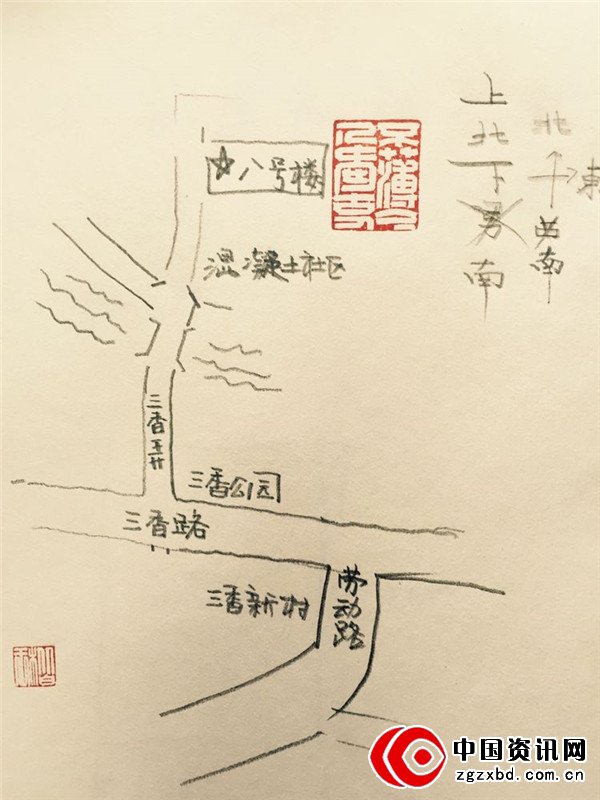 上
北
下
南
北
東
南
八号楼
混凝土社区
三香弄
三香公园
三香路
三香新村
劳动路
中国资讯网
zgzxbd.com.cn